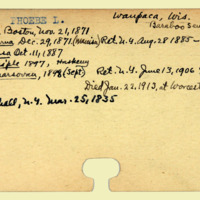 PHOEBE L.
Waupaca, Wis.
Baraboo Sem
Boston, Nov. 21, 1871
Dec. 29, 1871 Ret. N.Y. Aug. 28 1885-
Oct. 11, 1887
1897,
1898 (Sept) Ret. N.Y. June 13, 1906
Died Jan. 22, 1913, at Worcest
N.Y. Mar. 25, 1835